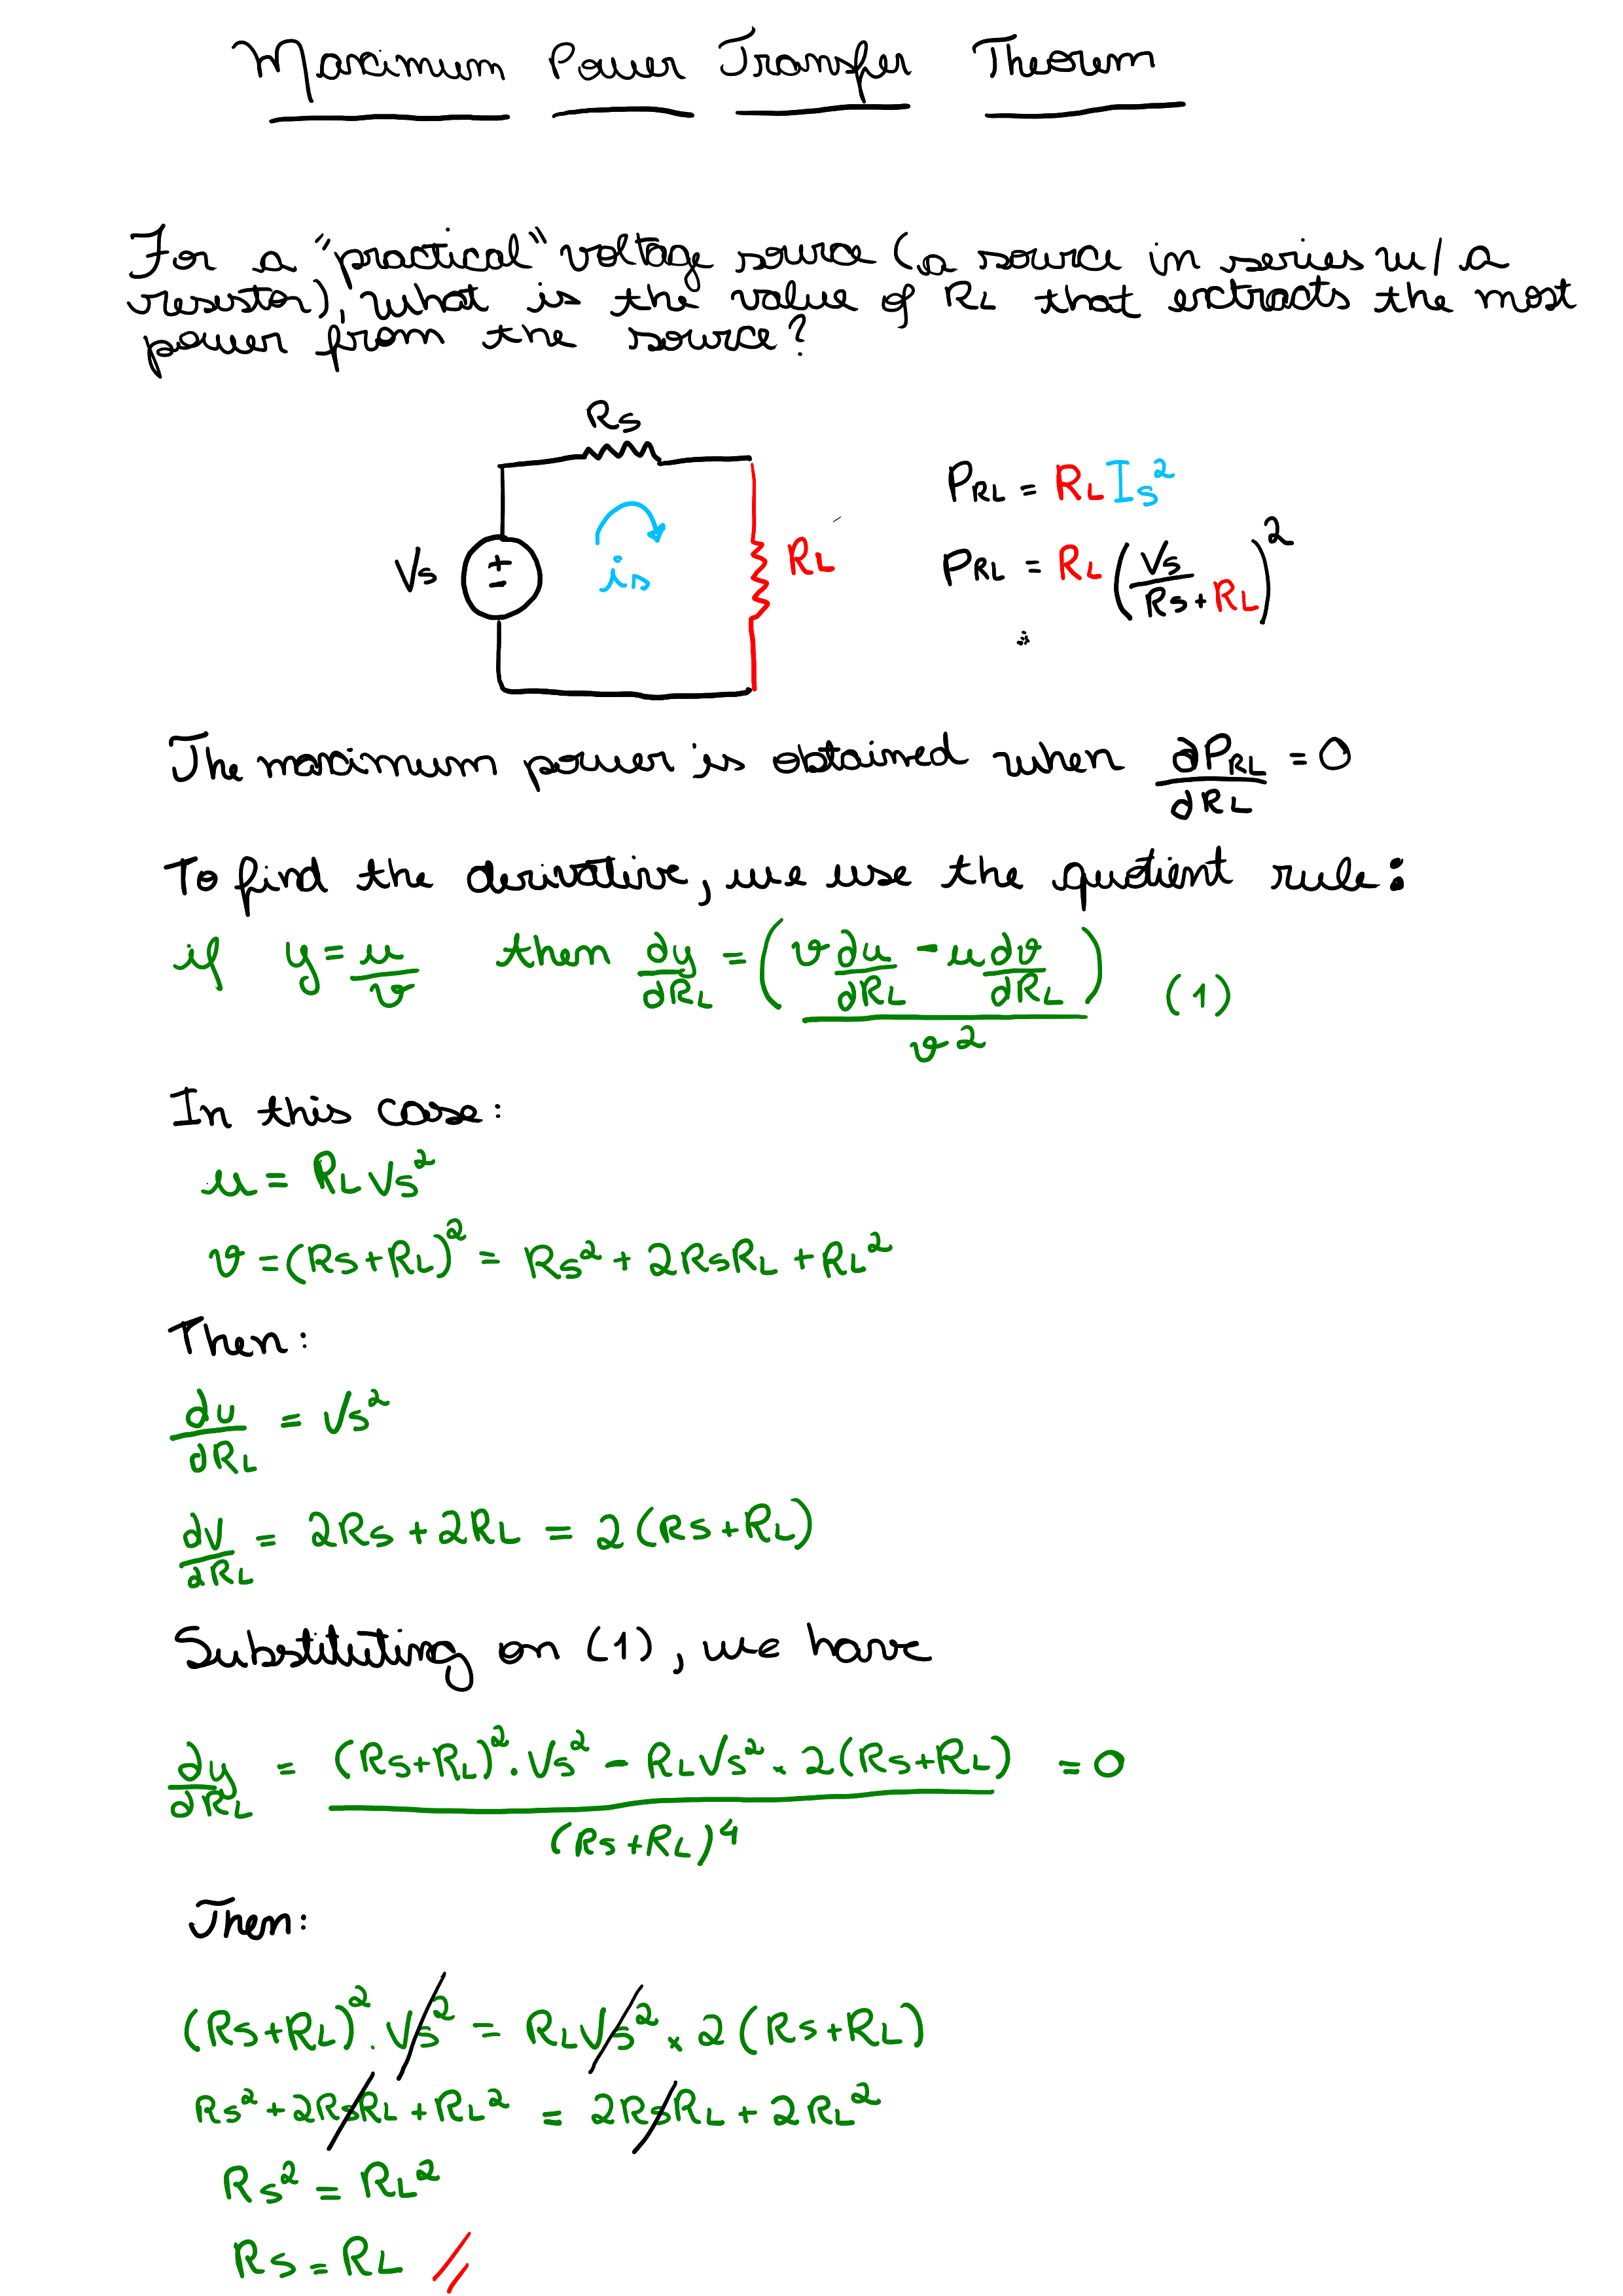 Maximum Power Transfer Theorem
For a "practical" voltage source (a source in series w/ a
resistor), what is the value of RL that extracts the most
power from the source?
Rs
Vs
+
-
is
RL
PRL = RL Is²
PRL = RL (Vs / (Rs+RL))²
The maximum power is obtained when dPRL/dRL = 0
To find the derivative, we use the quotient rule:
if y = u/v then dy/dRL = (v du/dRL - u dv/dRL) / v² (1)
In this case:
u = RL Vs²
v = (Rs+RL)² = Rs² + 2RsRL + RL²
Then:
du/dRL = Vs²
dV/dRL = 2Rs + 2RL = 2(Rs+RL)
Substituting on (1), we have
dy/dRL = ((Rs+RL)² . Vs² - RLVs² . 2(Rs+RL)) / (Rs+RL)⁴ = 0
Then:
(Rs+RL)² . Vs² = RLVs² x 2(Rs+RL)
Rs² + 2RsRL + RL² = 2RsRL + 2RL²
Rs² = RL²
Rs = RL //